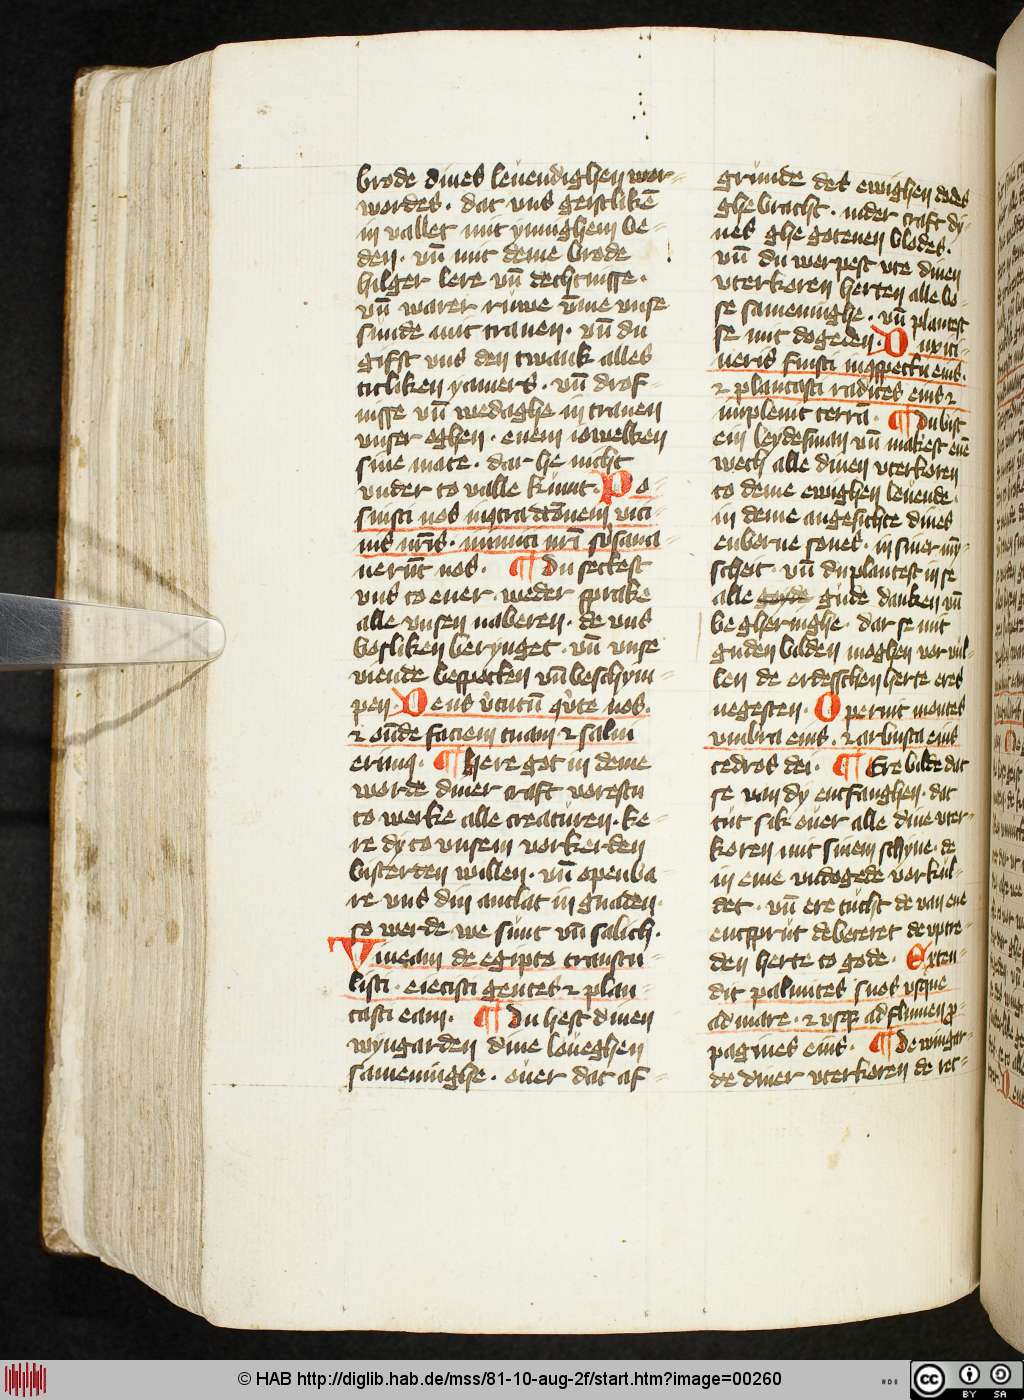 brode dines leuendighen wor-
wordes. dat vns geistlikē
in vallet mit ynnighem be-
den. vn̄ mit deme brode
hilger lere vn̄ dechtnisse.
vn̄ warer ruwe vm̄me vnse
sunde mit tranen. vn̄ du
gifst vns den twank alles
titliken yamers. vn̄ drof-
nisse vn̄ wedaghe in tranen
vnser oghen. enem iowelken
sine mate. dar he nicht
vnder to valle kumt. Po-
suisti nos in 9tradcōnem vici-
nis nr̄is. inimici nr̄i sb̄sanna-
uerūt nos. du settest
vns to ener. weder sprake
alle vnsen naberen. de vns
bosliken berynget. vn̄ vnse
viende bespotten vn̄ beschym-
pen. Deus v̾tutū 9v̾te nos.
⁊ on̄de faciem tuam ⁊ salui
erim9. here got in deme
worde diner craft vorestu
to werke alle creaturen. ke-
re dy to vnsem vorkerden
bisterden willen. vn̄ openba-
re vns din antlat in gnaden.
so werde we sunt vn̄ salich.
Vineam de egipto transtu-
listi. eiecisti gentes ⁊ plan-
tasti eam. du hest dinen
wyngarden dine loueghen
sameninghe. ouer dat af-
grunde des ewighen dodes
ghe bracht. in der craft di-
nes ghe gotenen blodes.
vn̄ du werpest vte dinen
vterkoren herten alle bo-
se sameninghe. vn̄ plantest
se mit dogeden. Dux iti-
neris fuisti in 9spectu eius.
⁊ plantasti radices eius ⁊
impleuit terrā. du bist
ein leydesman vn̄ makest enē
wech alle dinen vterkoren
to deme ewighen leuende.
in deme angesichte dines
enborne sones. in siner mȳ-
scheit. vn̄ du plantest in se
alle gude danken vn̄
be gheringhe. dar se mit
guden bilden moghen vor vul-
len de erdesschen herte eres
negesten. Operuit montes
vmbra eius. ⁊ arbusta eius
cedros dei. Ere bilde dat
se van dy entfanghen. dat
tut sik ouer alle dine vter-
koren mit sinem schyne. de
in eine vndogede vorkul-
det. vn̄ ere tucht de van ene
entsprut de beteret de vptre-
den herte to gode. Exten-
dit palmites suos vsque
ad mare. ⁊ vsq3 ad flumen p̄-
pagines eius. de wingar-
de diner vterkoren de ret-
© HAB http://diglib.hab.de/mss/81-10-aug-2f/start.htm?image=00260
HAB
CC BY SA